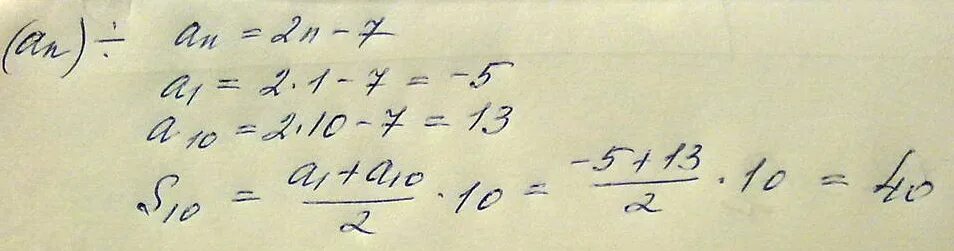 (an) ÷ an = 2n - 7
a1 = 2·1 - 7 = -5
a10 = 2·10 - 7 = 13
S10 = (a1 + a10)/2 · 10 = (-5 + 13)/2 · 10 = 40